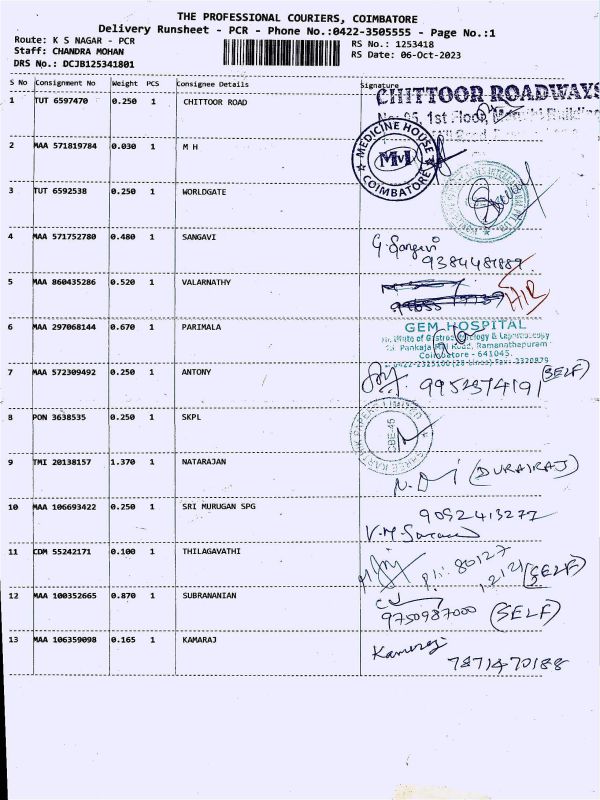 THE PROFESSIONAL COURIERS, COIMBATORE
Delivery Runsheet - PCR - Phone No.:0422-3505555 - Page No.:1
Route: K S NAGAR - PCR
RS No.: 1253418
Staff: CHANDRA MOHAN
RS Date: 06-Oct-2023
DRS No.: DCJB125341801
S No Consignment No Weight PCS Consignee Details Signature
1 TUT 6597470 0.250 1 CHITTOOR ROAD
CHITTOOR ROADWAYS
1st Floor,
2 MAA 571819784 0.030 1 M H
MEDICINE HOUSE
COIMBATORE
3 TUT 6592538 0.250 1 WORLDGATE
4 MAA 571752780 0.480 1 SANGAVI
G. Sangavi
9384481889
5 MAA 860435286 0.520 1 VALARNATHY
6 MAA 297068144 0.670 1 PARIMALA
GEM HOSPITAL
Pankaja Mill Road, Ramanathapuram
Coimbatore - 641045.
7 MAA 572309492 0.250 1 ANTONY
9952374191 (SELF)
8 PON 3638535 0.250 1 SKPL
CBE-45
9 TMI 20138157 1.370 1 NATARAJAN
(DURAIRAJ)
10 MAA 106693422 0.250 1 SRI MURUGAN SPG
9092413277
11 CDM 55242171 0.100 1 THILAGAVATHI
80127
12121 (SELF)
12 MAA 100352665 0.870 1 SUBRANANIAN
9750987000 (SELF)
13 MAA 106359098 0.165 1 KAMARAJ
Kamaraj
7871470188